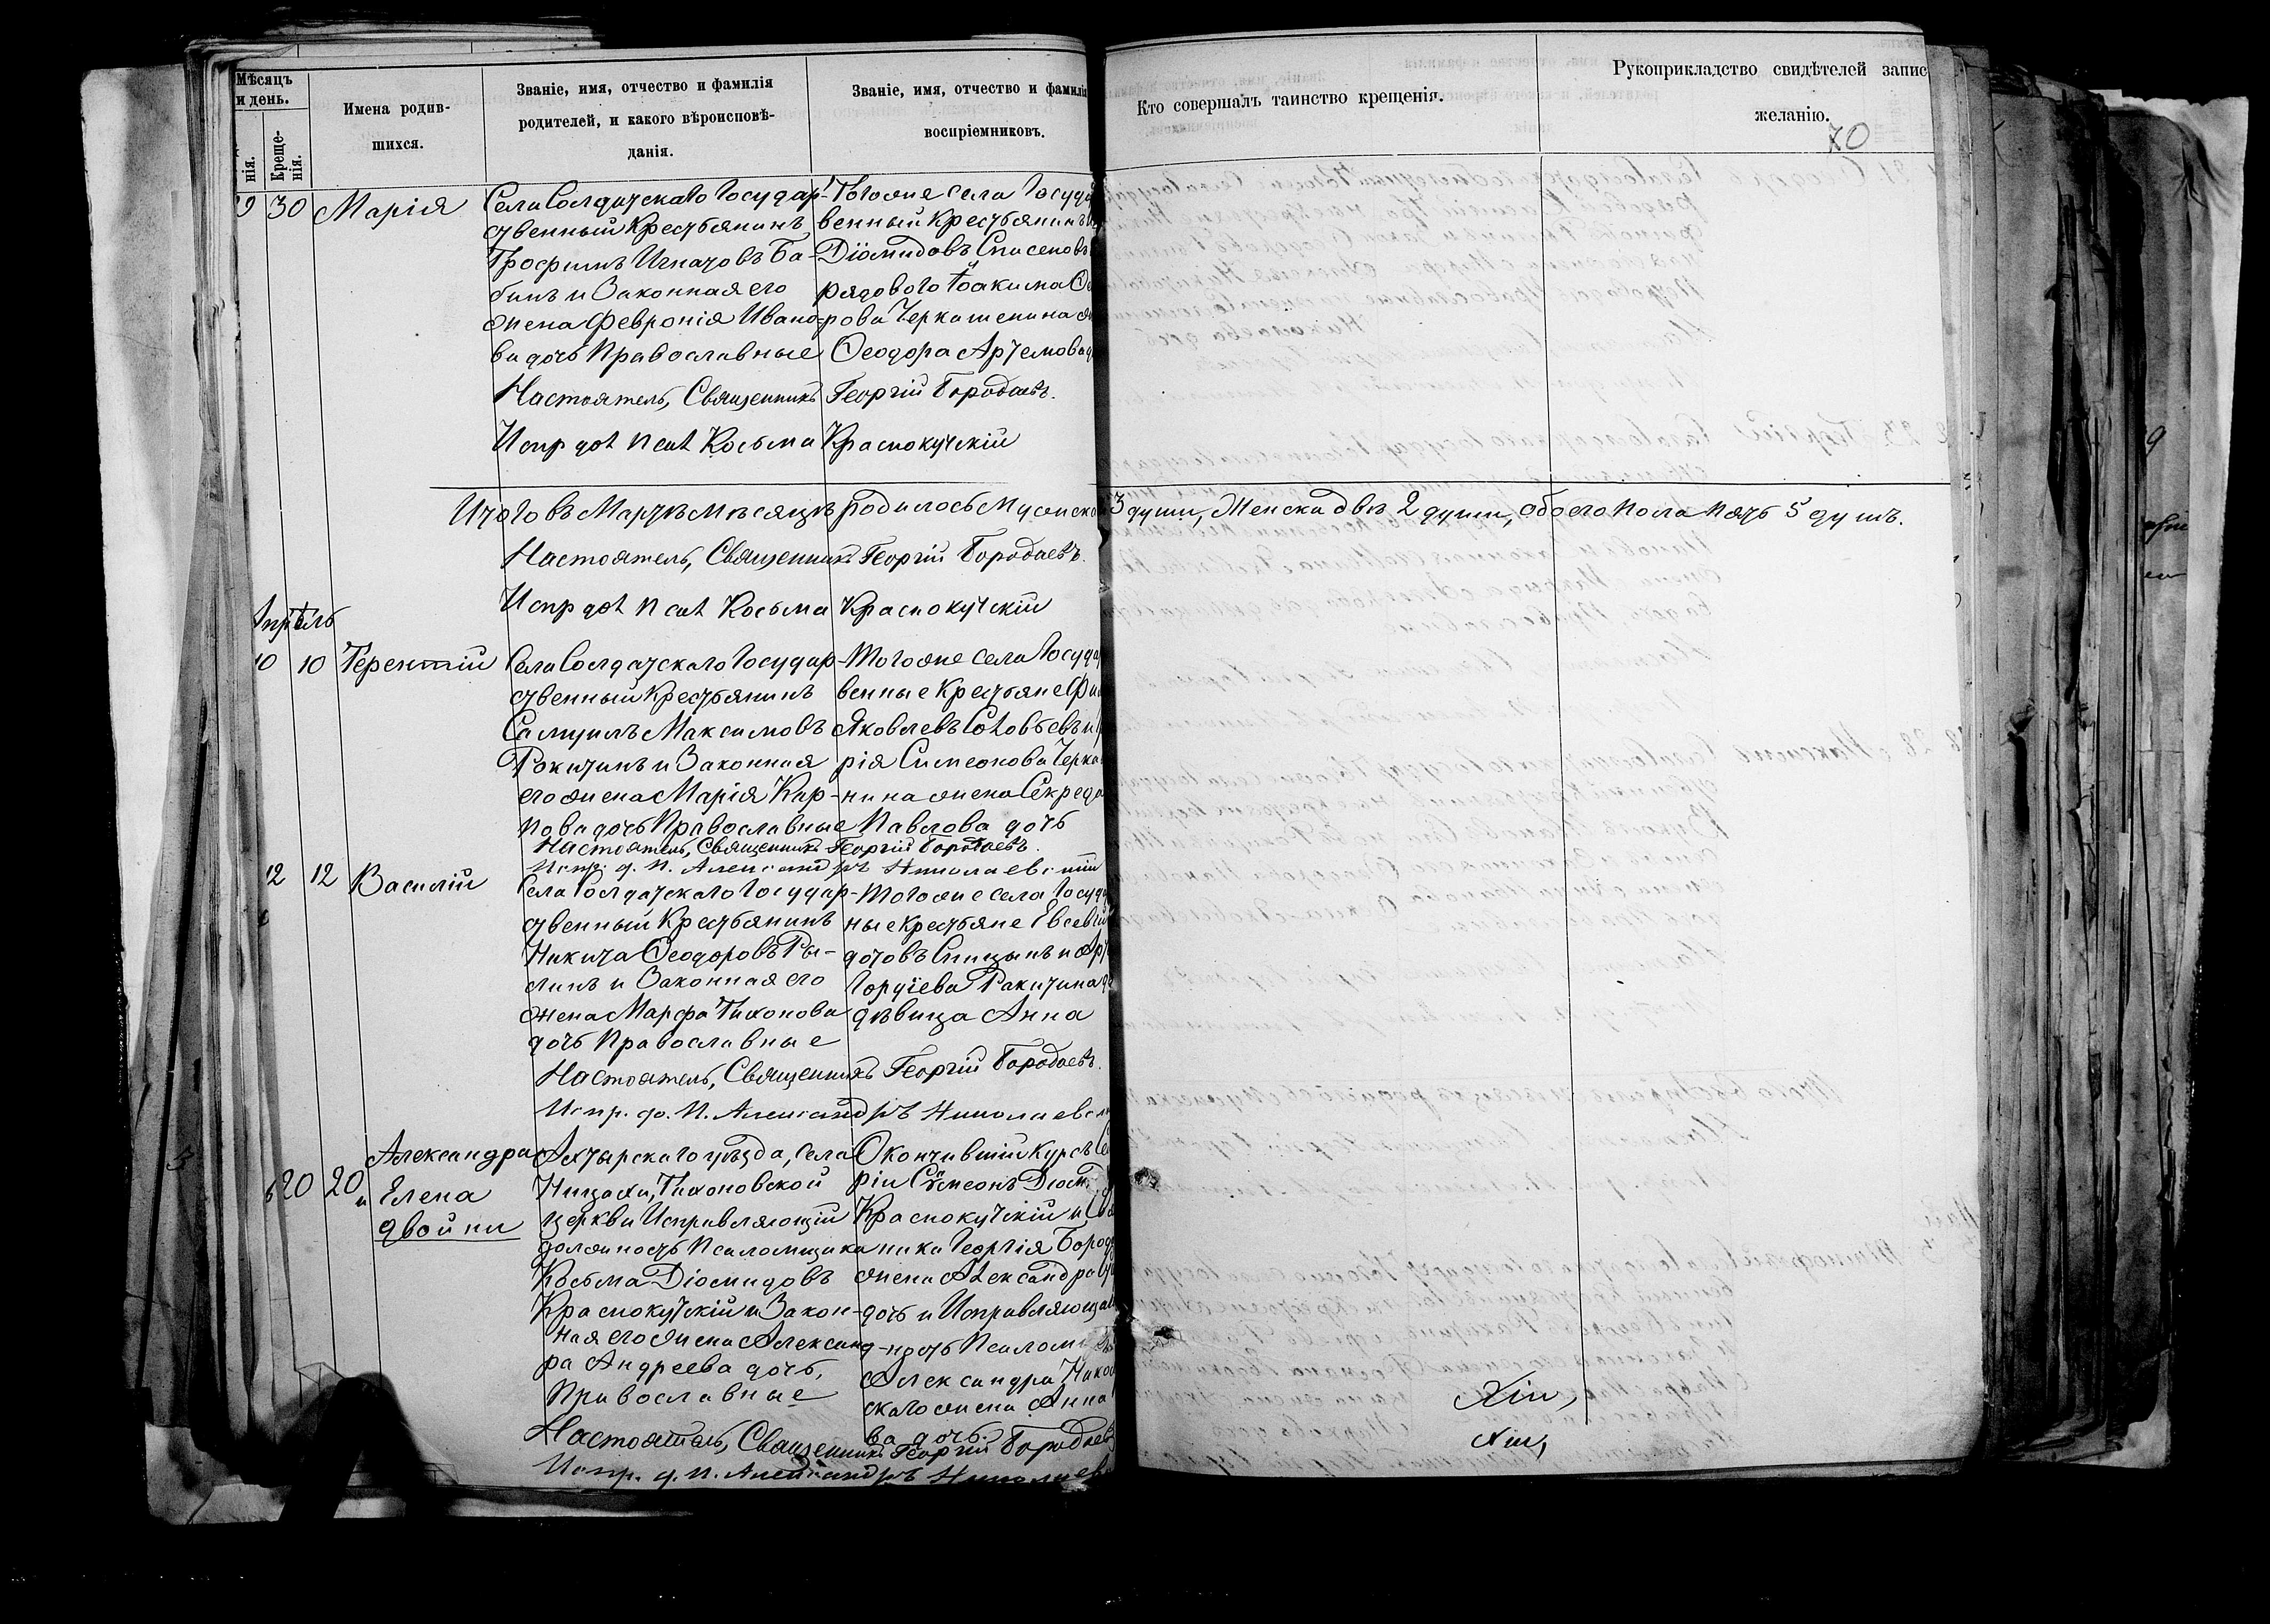 Мѣсяцъ
и день.
нія.
Креще-
нія.
Имена родив-
шихся.
Званіе, имя, отчество и фамилія
родителей, и какого вѣроисповѣ-
данія.
Званіе, имя, отчество и фамилія
воспріемниковъ.
Кто совершалъ таинство крещенія.
Рукоприкладство свидѣтелей запис
желанію.
70
9 30 Марія
Села Солдатскаго Государ-
ственный Крестьянинъ
Трофимъ Игнатовъ Ба-
бинъ и Законная его
жена Февронія Ивано-
ва дочь Православные
Тогоже села Госуда
венный Крестьянинъ
Діомидовъ
рядового Іоакима
рова Черкашенина
Ѳеодора Артемова
Настоятель, Священникъ Георгій Бородаевъ.
Испр дол псал Косьма Краснокутскій
Итого въ Мартѣ Мѣсяцѣ родилось Мужеска 3 души, Женска двѣ 2 души, обоего пола пять 5 душъ.
Настоятель, Священникъ Георгій Бородаевъ.
Испр дол псал Косьма Краснокутскій
Апрѣль
10 10 Терентій
Села Солдатскаго Государ-
ственный Крестьянинъ
Самуилъ Максимовъ
Рокитинъ и Законная
его жена Марія Кар-
пова дочь Православные
Тогоже села Госуда
венные Крестьяне
Яковлевъ Соловьевъ и
рія Симеонова Черка
нина жена
Павлова дочь
Настоятель, Священникъ Георгій Бородаевъ.
Испр. д. П. Александръ Николаевскій
12 12 Василій
Села Солдатскаго Государ-
ственный Крестьянинъ
Никита Ѳеодоровъ Ры-
линъ и Законная его
жена Марфа Тихонова
дочь Православные
Тогоже села Госуда
ные крестьяне Евсевій
дотовъ Спицынъ и
Гордіева Ракитина
дѣвица Анна
Настоятель, Священникъ Георгій Бородаевъ.
Испр. до. П. Александръ Николаевск
20 20 Александра
и Елена
двойни
Ахтырскаго уѣзда, села
Ницахи, Тихоновской
церкви Исправляющій
должность Псаломщика
Косьма Діомидовъ
Краснокутскій и Закон-
ная его жена Александ-
ра Андреева дочь,
Православные
Окончившій курсъ
ріи Сѵмеонъ Діом
Краснокутскій и Свя
ника Георгія Бород
жена Александра
дочь и Исправляюща
ность Псалом
Александра Никол
скаго жена Анна
ва дочь.
Настоятель, Священникъ Георгій Бородаевъ
Испр. д. П. Александръ Николаев